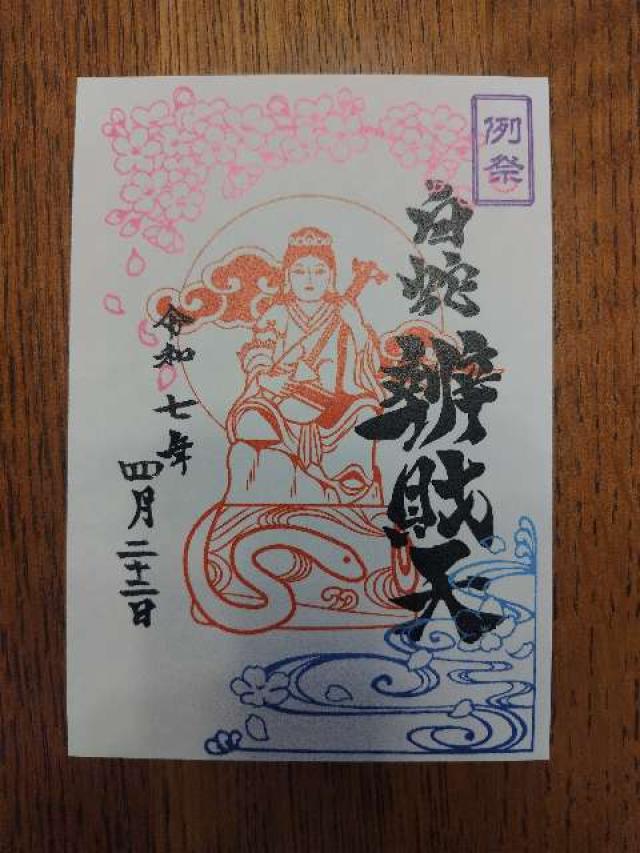 例祭
白蛇辨財天
令和七年
四月二十二日